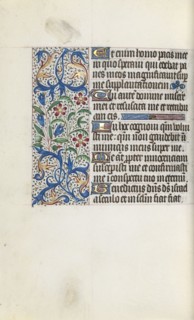 Et enim homo pacis mee
in quo speraui qui edebat pa
nes meos magnificauit sup
me supplantationem
Tu autem domine miser
mei et resuscita me et retribu
am eis
In hoc cognoui qm volui
sti me: qm non gaudebit i
nimicus meus super me
Me at ppter innocenciam
suscepisti me et confirmasti
me i conspectu tuo in eternū
Benedictus dns ds israel
a seculo et in sclm fiat fiat